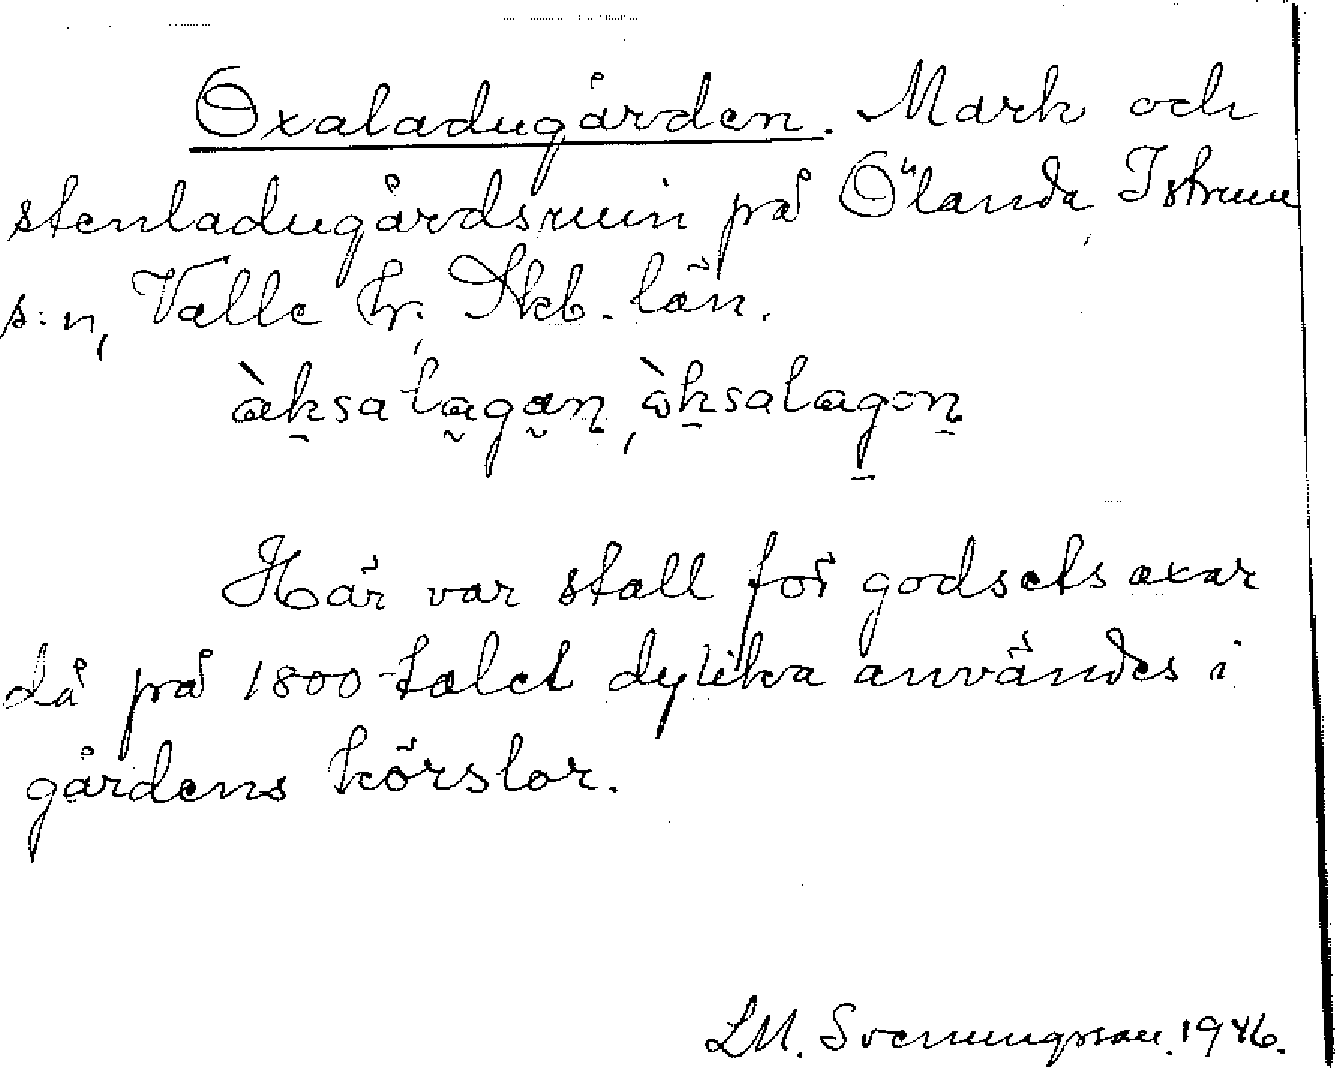 Oxaladugården. Mark och
stenladugårdsruin på Ölanda, Istrum
s:n, Valle hr, Skb. län.
àksalagan, òksalagon
Här var stall för godsets oxar
då på 1800-talet dylika användes i
gårdens körslor.
LM. Svenungsson. 1946.